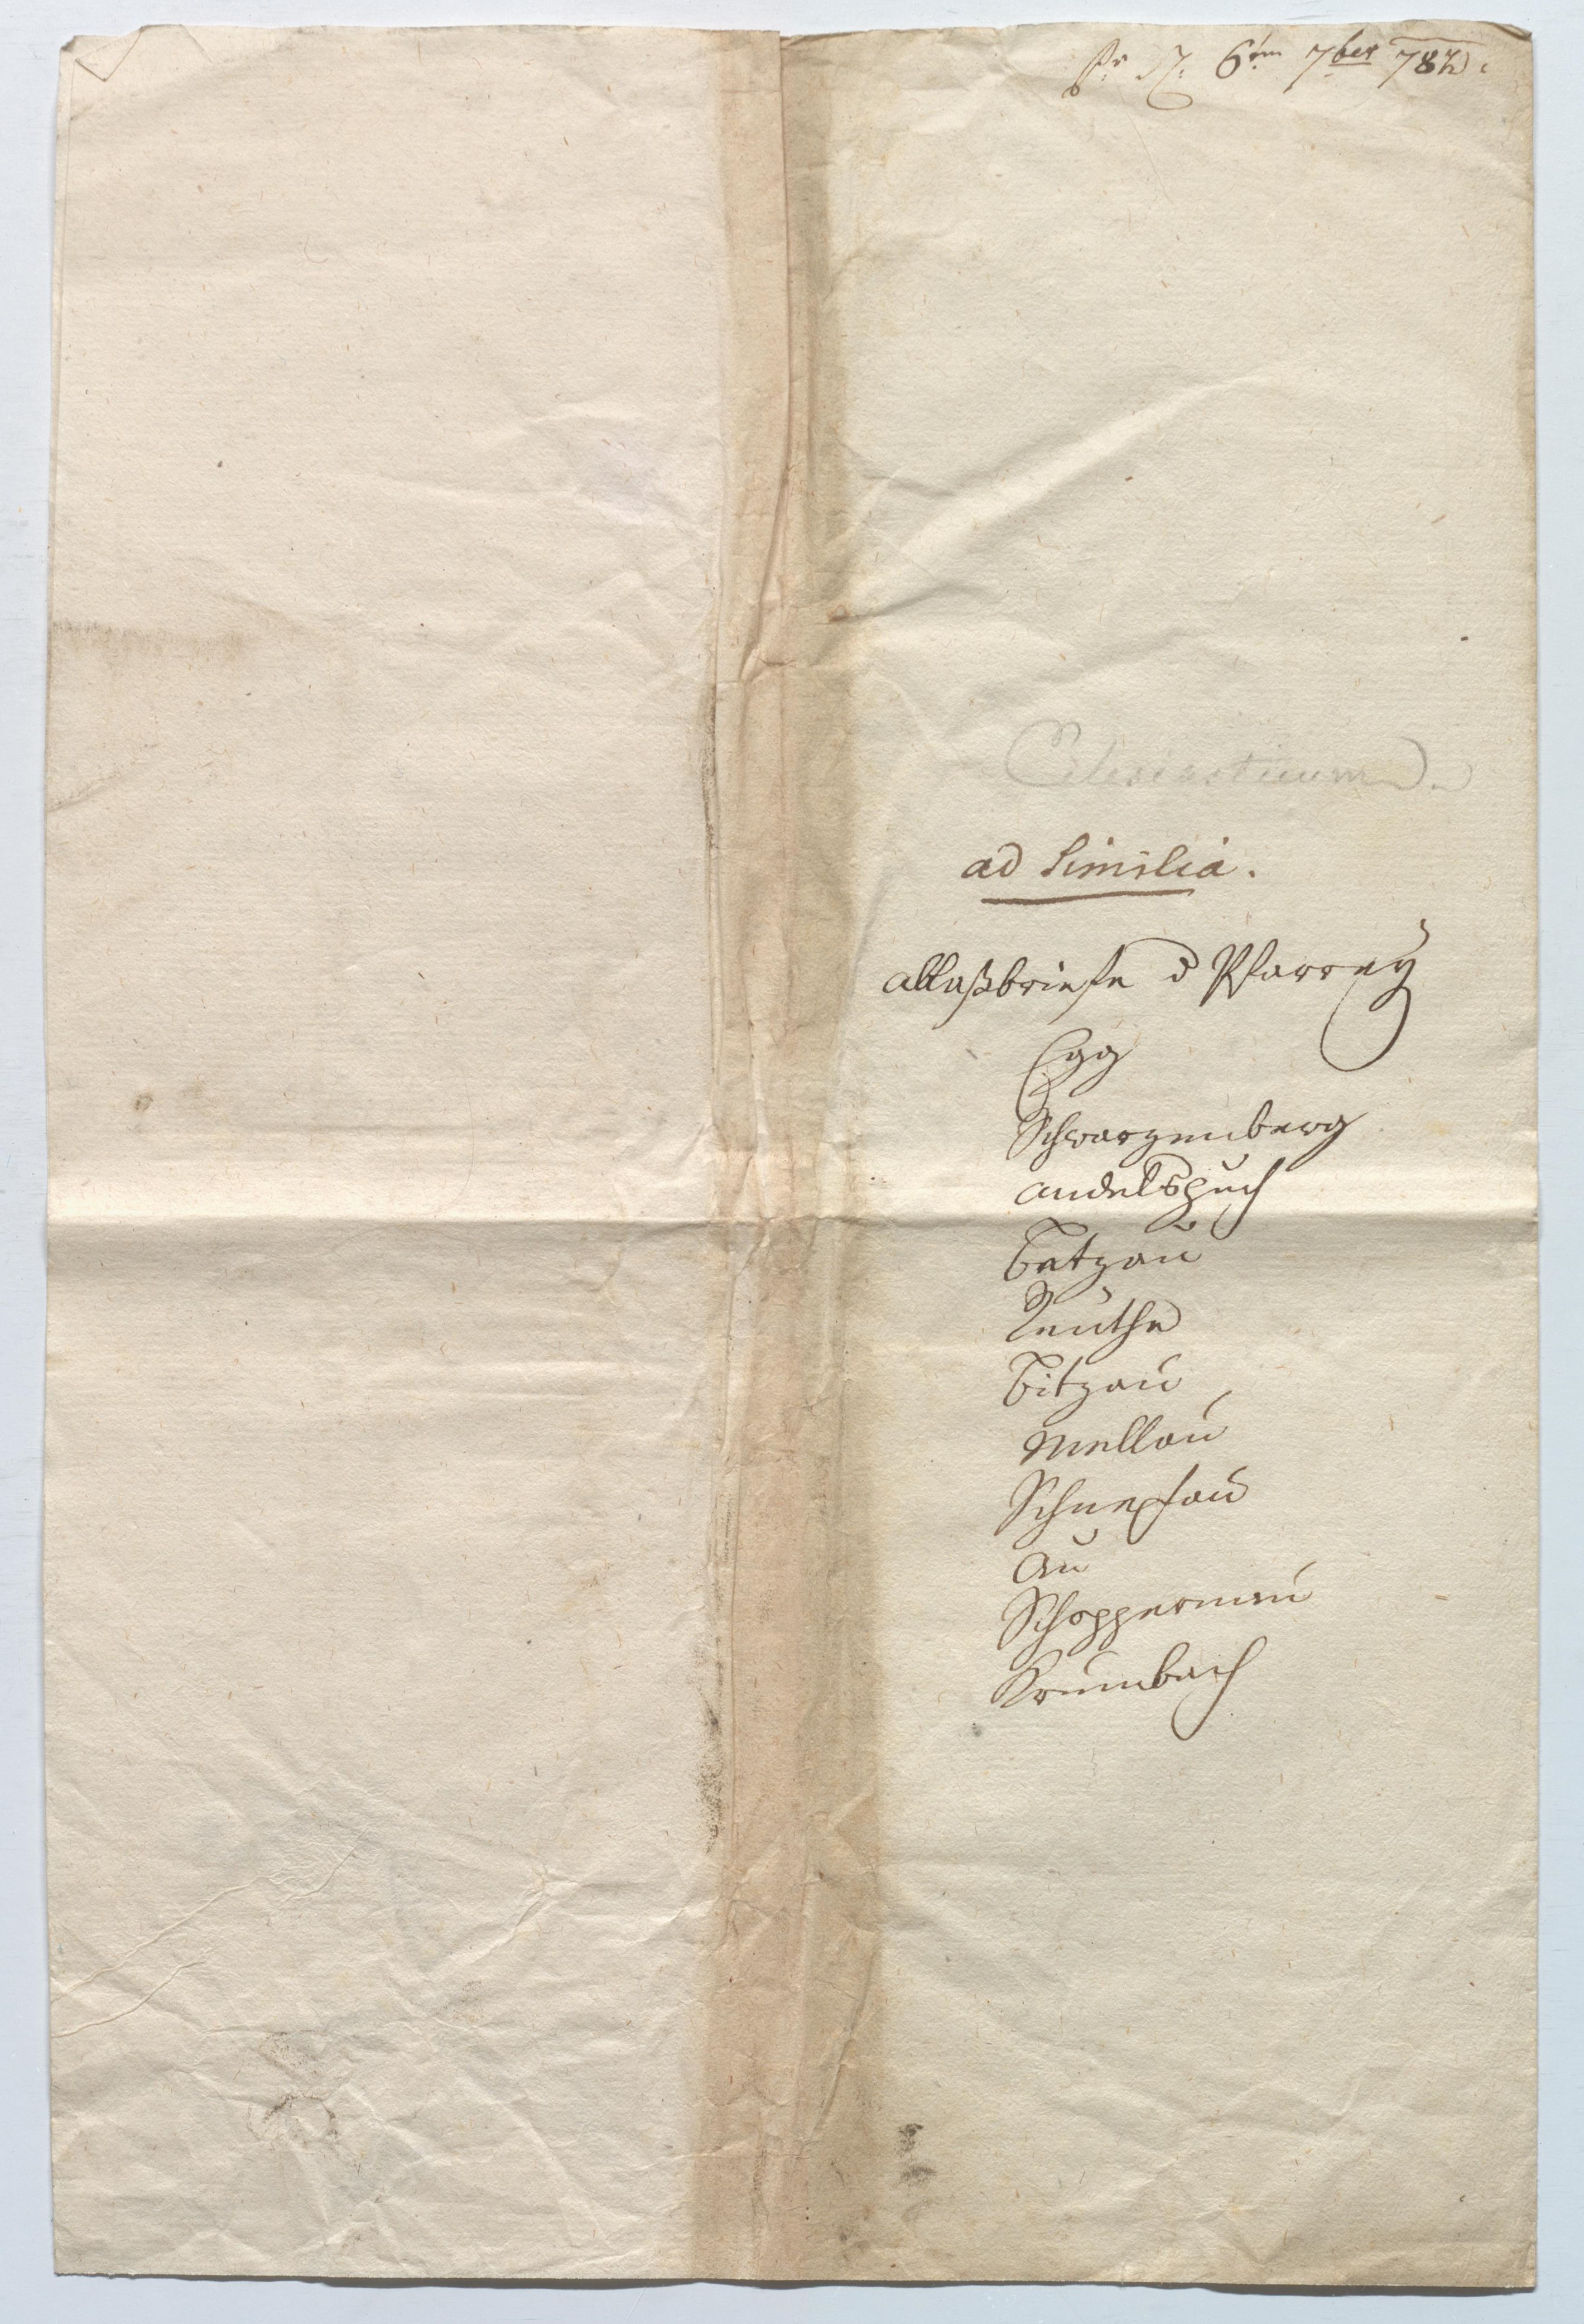 6ten 7ber 787.
Eclesiasticum.
ad Similia.
ablaßbriefe d Pfarrey
Egg
Schwarzenberg
andelsbuch
Betzau
Reuthe
Bitzau
Mellau
Schnepfau
Au
Schoppernau
Krumbach